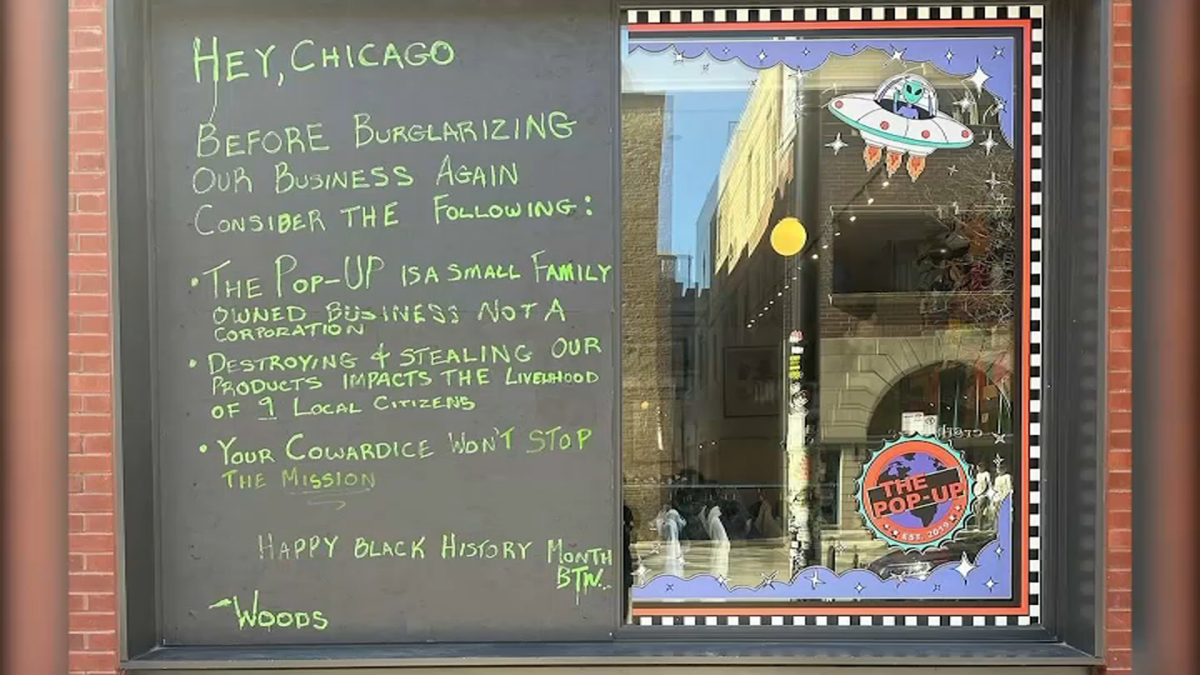 HEY, CHICAGO
BEFORE BURGLARIZING
OUR BUSINESS AGAIN
CONSIDER THE FOLLOWING:
• THE POP-UP IS A SMALL FAMILY
OWNED BUSINESS NOT A
CORPORATION
• DESTROYING & STEALING OUR
PRODUCTS IMPACTS THE LIVELIHOOD
OF 9 LOCAL CITIZENS
• YOUR COWARDICE WON'T STOP
THE MISSION
HAPPY BLACK HISTORY MONTH
BTW..
~WOODS
THE
POP-UP
EST. 2019